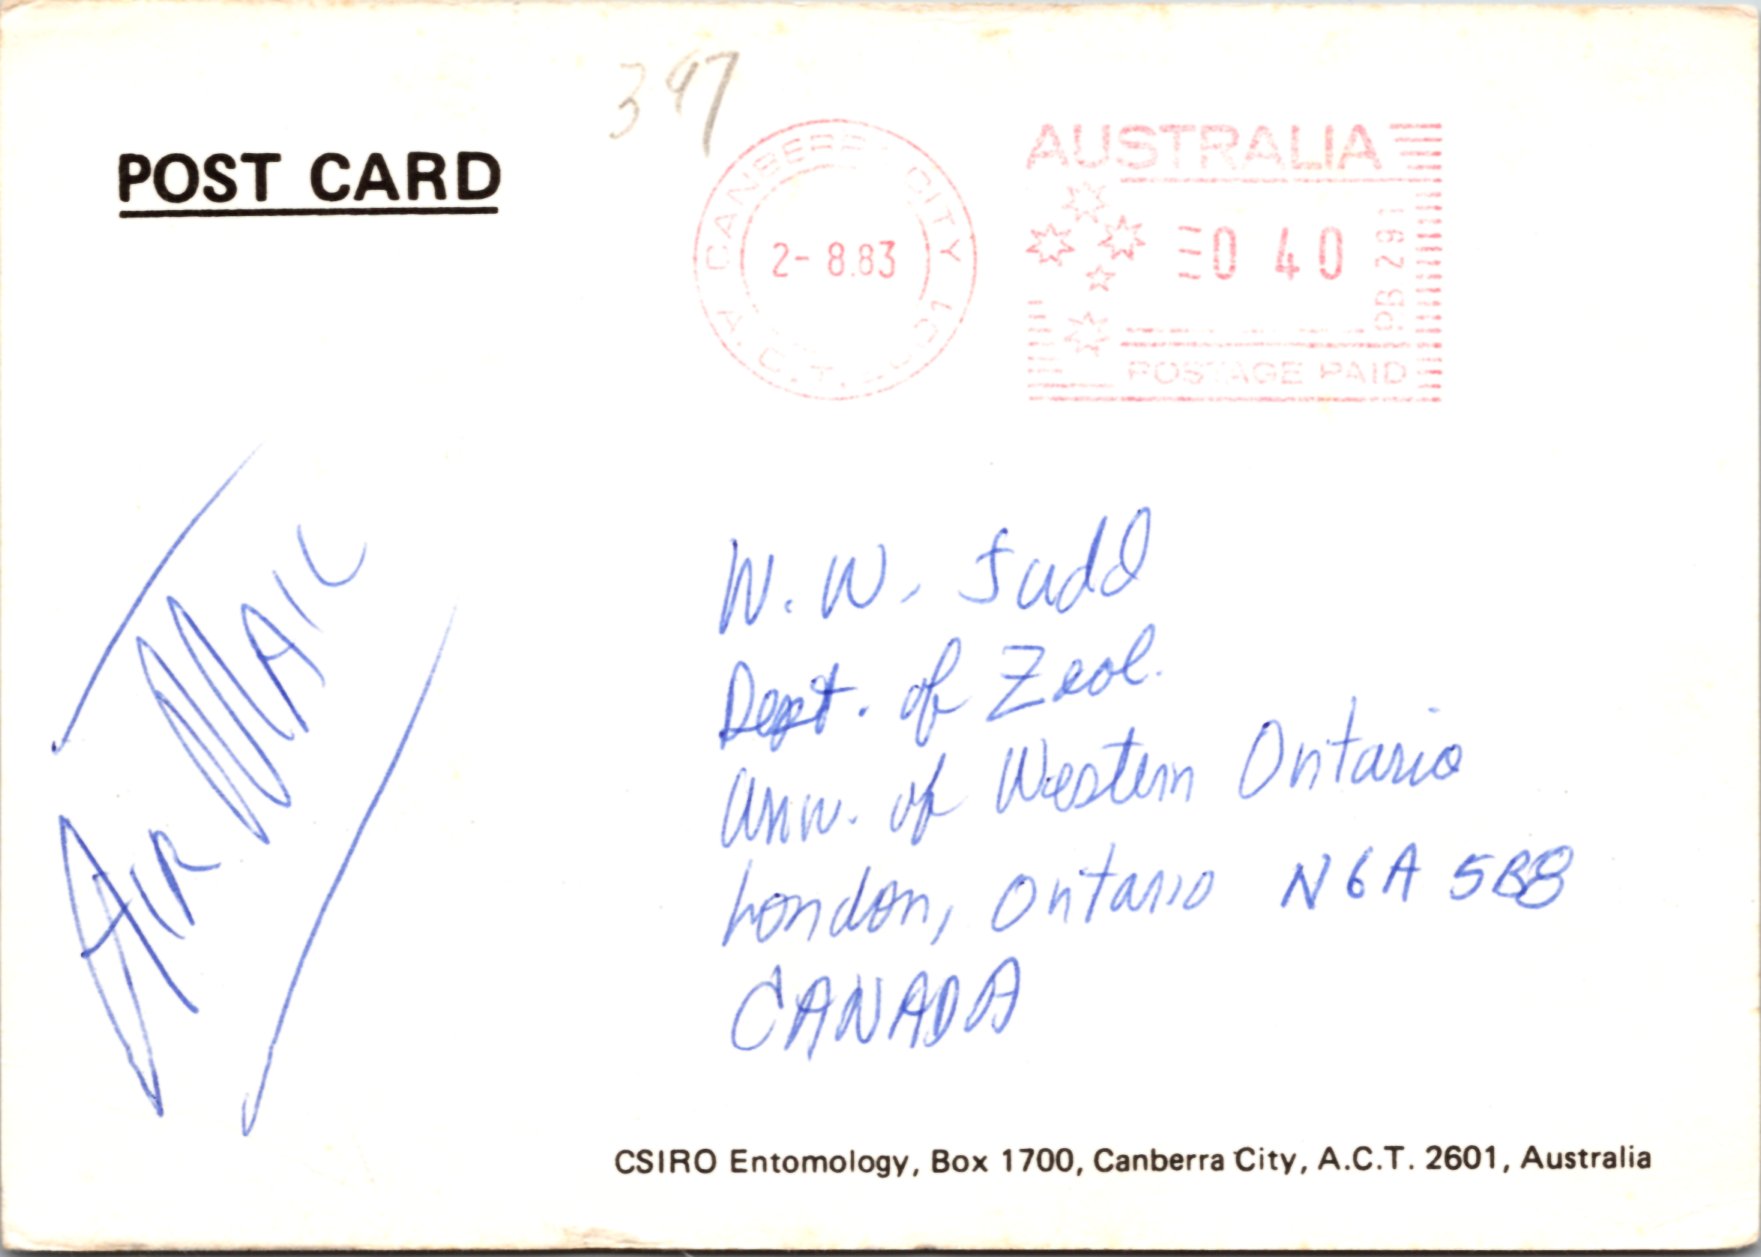 397
POST CARD
CANBERRA CITY
A.C.T.
2- 8.83
AUSTRALIA
0 40
PB 291
POSTAGE PAID
AIR MAIL
W. W. Judd
Dept. of Zool.
Univ. of Western Ontario
London, Ontario N6A 5B8
CANADA
CSIRO Entomology, Box 1700, Canberra City, A.C.T. 2601, Australia